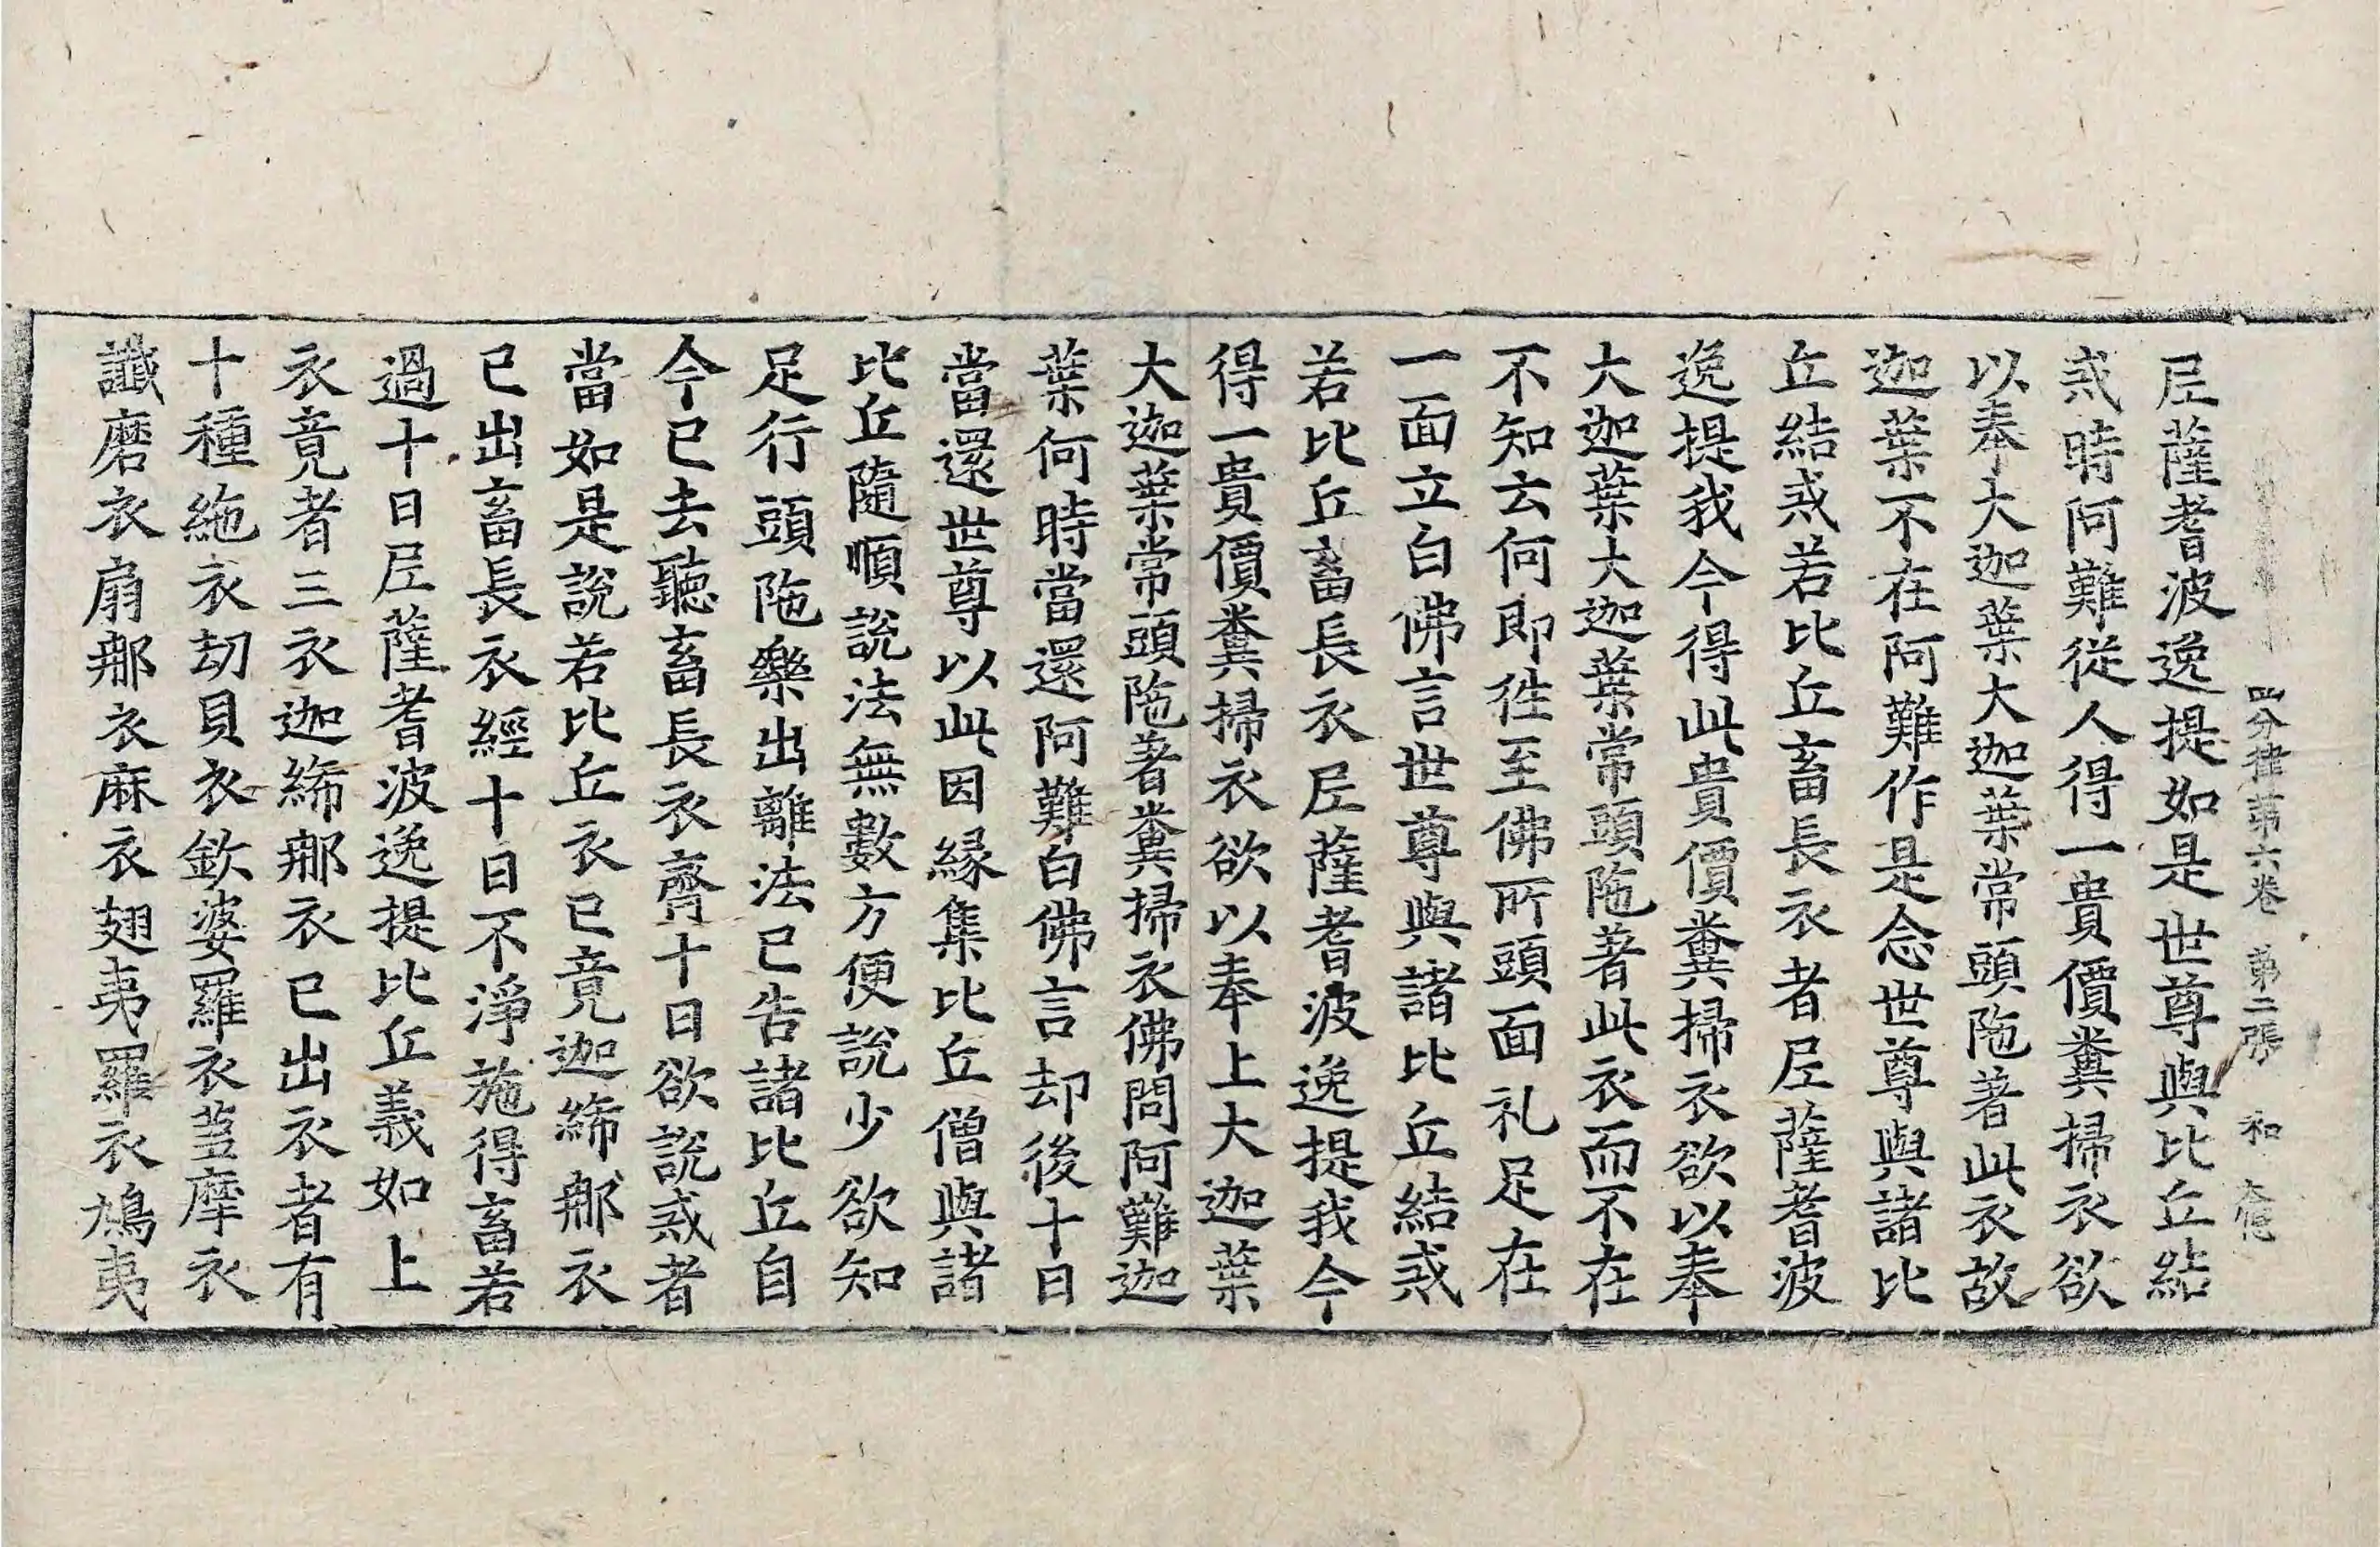 四分律第六卷 第二張 和
𡰱薩耆波逸提如是世尊與比丘結
戒時阿難從人得一貴價糞掃衣欲
以奉大迦葉大迦葉常頭陁著此衣故
迦葉不在阿難作是念世尊與諸比
丘結戒若比丘畜長衣者𡰱薩耆波
逸提我今得此貴價糞掃衣欲以奉
大迦葉大迦葉常頭陁著此衣而不在
不知云何即徃至佛所頭面礼足在
一面立白佛言世尊與諸比丘結戒
若比丘畜長衣𡰱薩耆波逸提我今
得一貴價糞掃衣欲以奉上大迦葉
大迦葉常頭陁著糞掃衣佛問阿難迦
葉何時當還阿難白佛言却後十日
當還世尊以此因緣集比丘僧與諸
比丘隨順說法無數方便說少欲知
足行頭陁樂出離法已告諸比丘自
今已去聽畜長衣齊十日欲說戒者
當如是說若比丘衣已竟迦絺那衣
已出畜長衣經十日不淨施得畜若
過十日𡰱薩耆波逸提比丘義如上
衣竟者三衣迦絺那衣已出衣者有
十種絁衣劫貝衣欽婆羅衣芻摩衣
讖磨衣扇那衣麻衣翅夷羅衣鳩夷